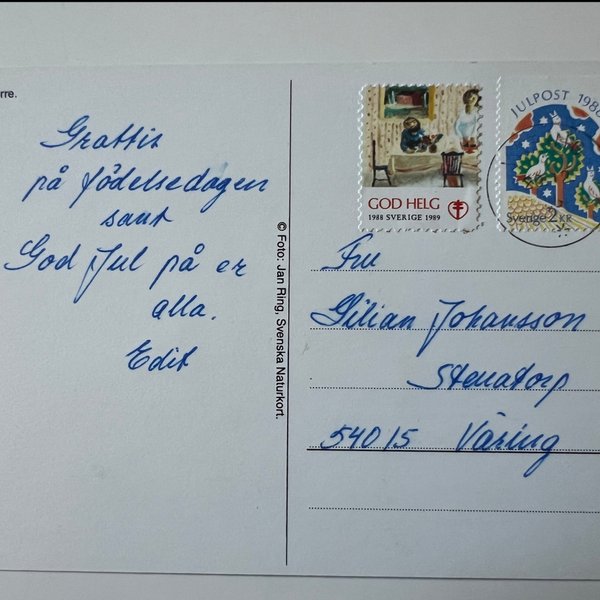 rre.
Grattis
på födelsedagen
samt
God Jul på er
alla.
Edit
© Foto: Jan Ring, Svenska Naturkort.
GOD HELG
1988 SVERIGE 1989
JULPOST 1988
Sverige 2 KR
Fru
Gilian Johansson
Stenatorp
54015 Väring